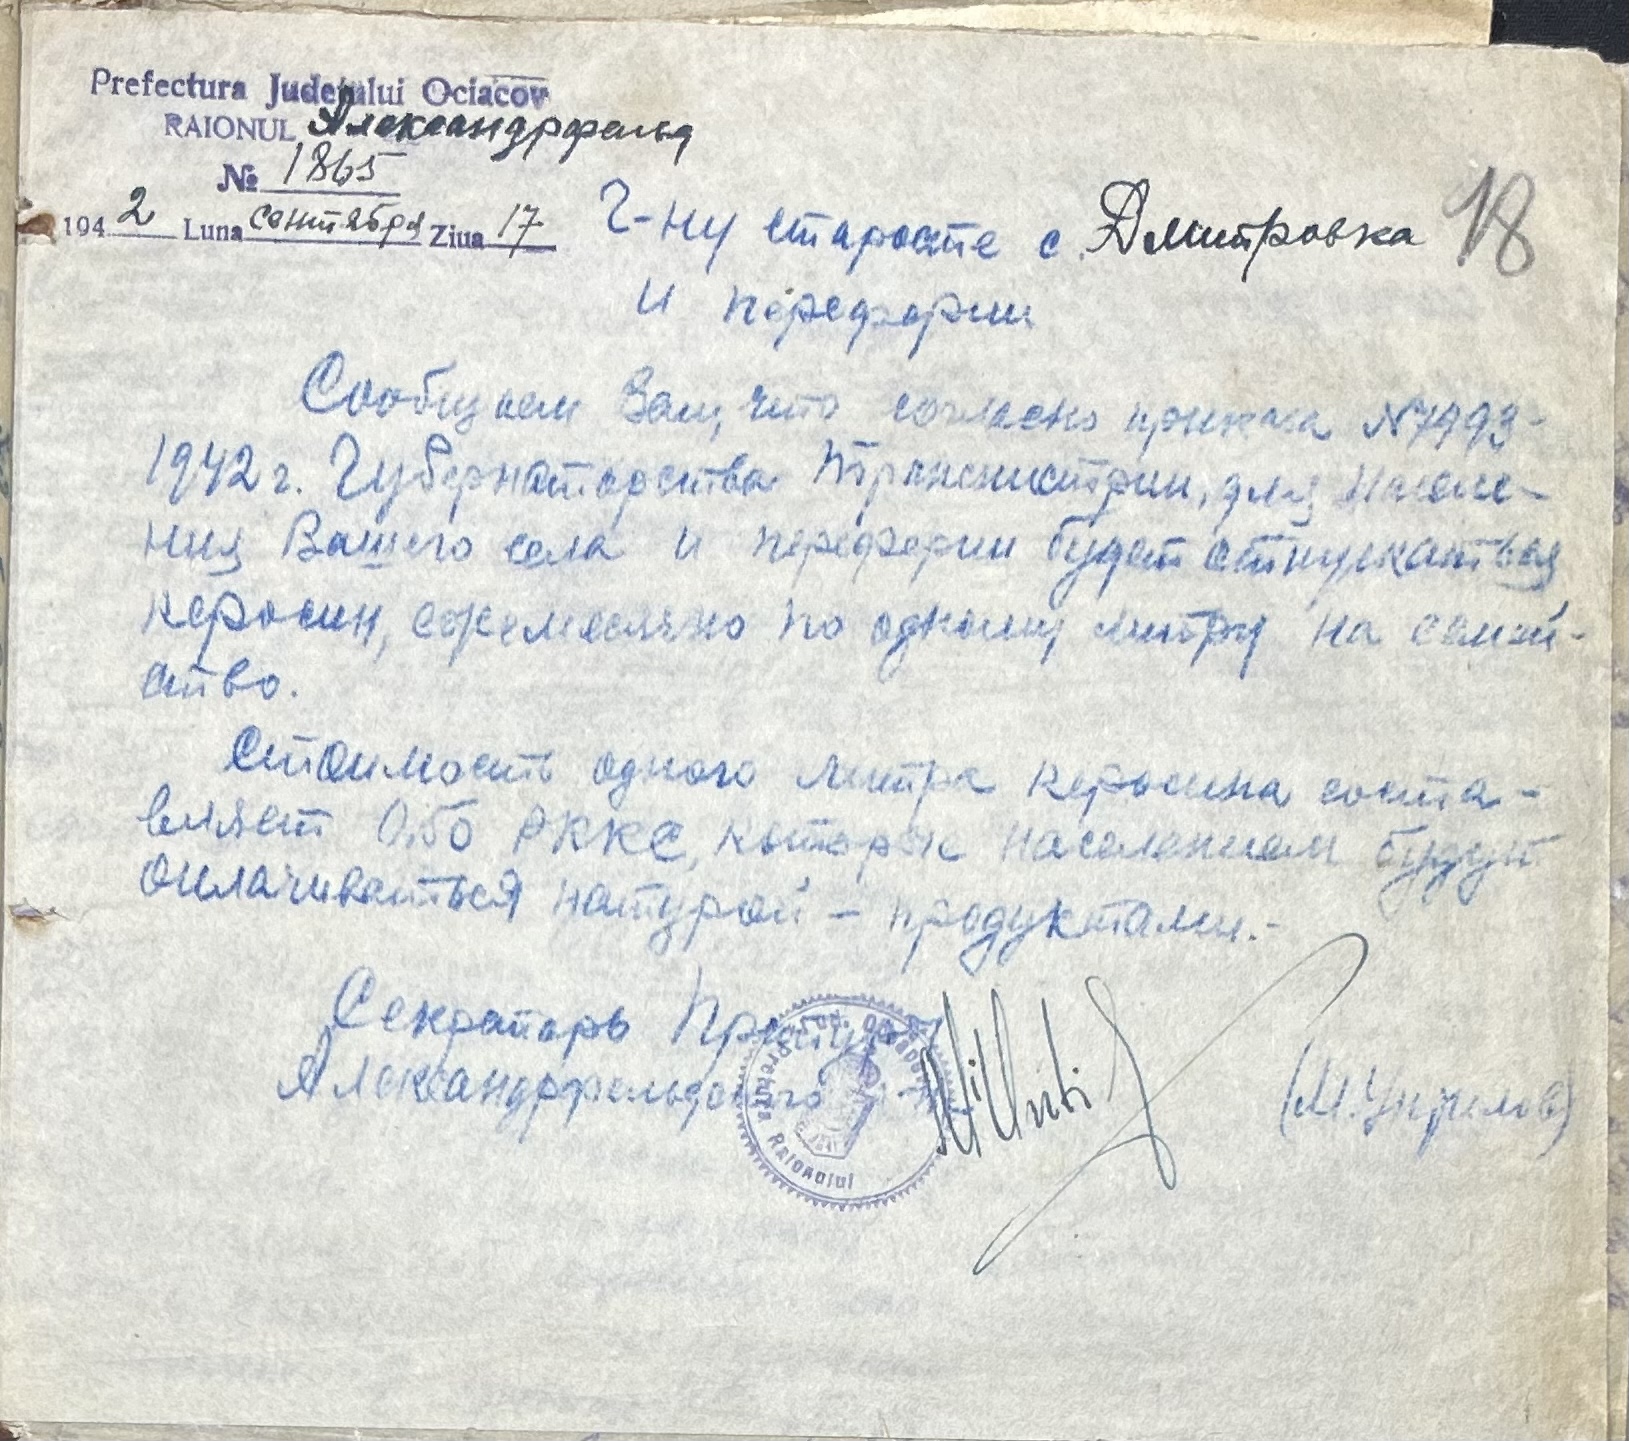 Prefectura Județului Ociacov
RAIONUL Александрфельд
№ 1865
1942 Luna сентября Ziua 17
18
Г-ну старосте с. Дмитровка
и переферии
Сообщаем Вам, что согласно приказа №7493-
1942 г. Губернаторства Транснистрии, для населе-
ния Вашего села и переферии будет отпускаться
керосин, ежемесячно по одному литру на семей-
ство.
Стоимость одного литра керосина соста-
вляет 0,60 РККС, которые населением будут
оплачиваться натурой – продуктами.-
Секретарь Претуры
Александрфельдского р-на
Pretura Raionului